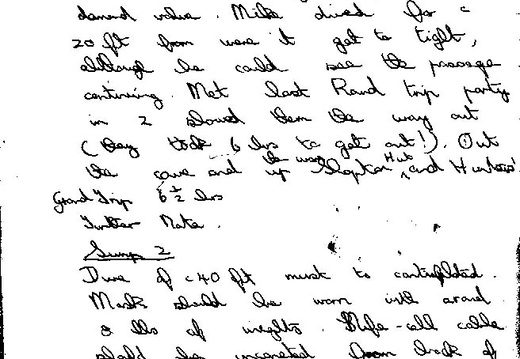 demand valve. Mike dived for c
20 ft from were it got to tight,
although he could see the passage
continuing. Met last Rand trip party
in 2 showed them the way out
(they took 6 hrs to get out!). Out
the cave and up the way Slopton Hut and Hunters'
Grand Trip 6½ hrs
Further Note.
Sump 2
Dive of c40 ft must to contemplated.
Mask should be worn with around
8 lbs of weights. Nife-cell cable
should be unconnected from back of